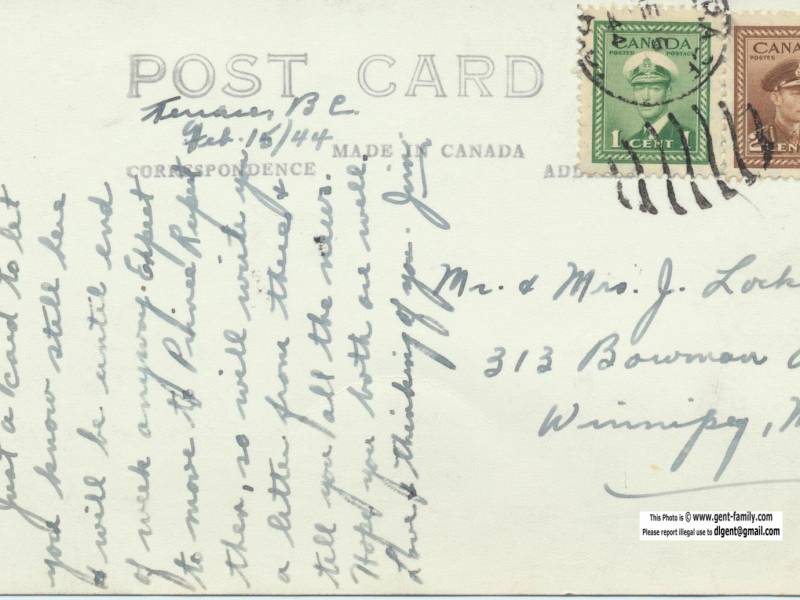 POST CARD
Terrace, B.C.
Feb. 15/44
MADE IN CANADA
CORRESPONDENCE
Just a card to let
you know still here
& will be until end
of week anyway. Expect
to move to Prince Rupert
then, so will write you
a letter from there &
tell you all the news.
Hope you both are well.
Love & thinking of you. Jim
CANADA
POSTES POSTAGE
1 CENT 1
CANA
POSTES
2
CEN
Mr. & Mrs. J. Lock
313 Bowman A
Winnipeg, M
This Photo is © www.gent-family.com
Please report illegal use to dlgent@gmail.com